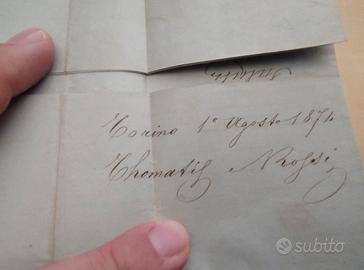 Torino 1° Agosto 1874
Thomatis e Rossi
subito